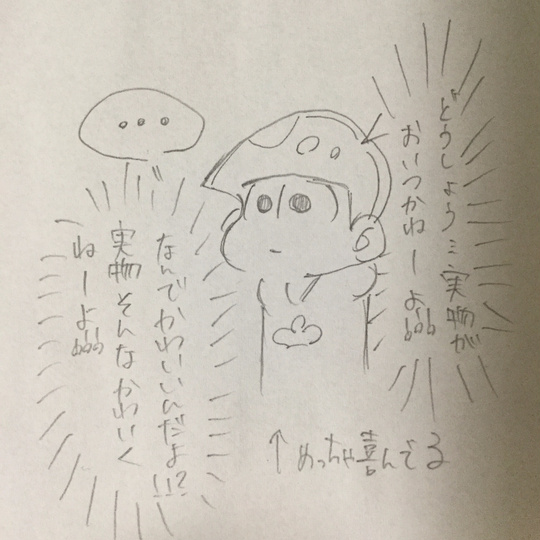 どうしよう…実物が
おいつかねーよ。。。
…
なんでかわいいんだよ!!?
実物そんなかわいく
ねーよ。。。
↑めっちゃ喜んでる